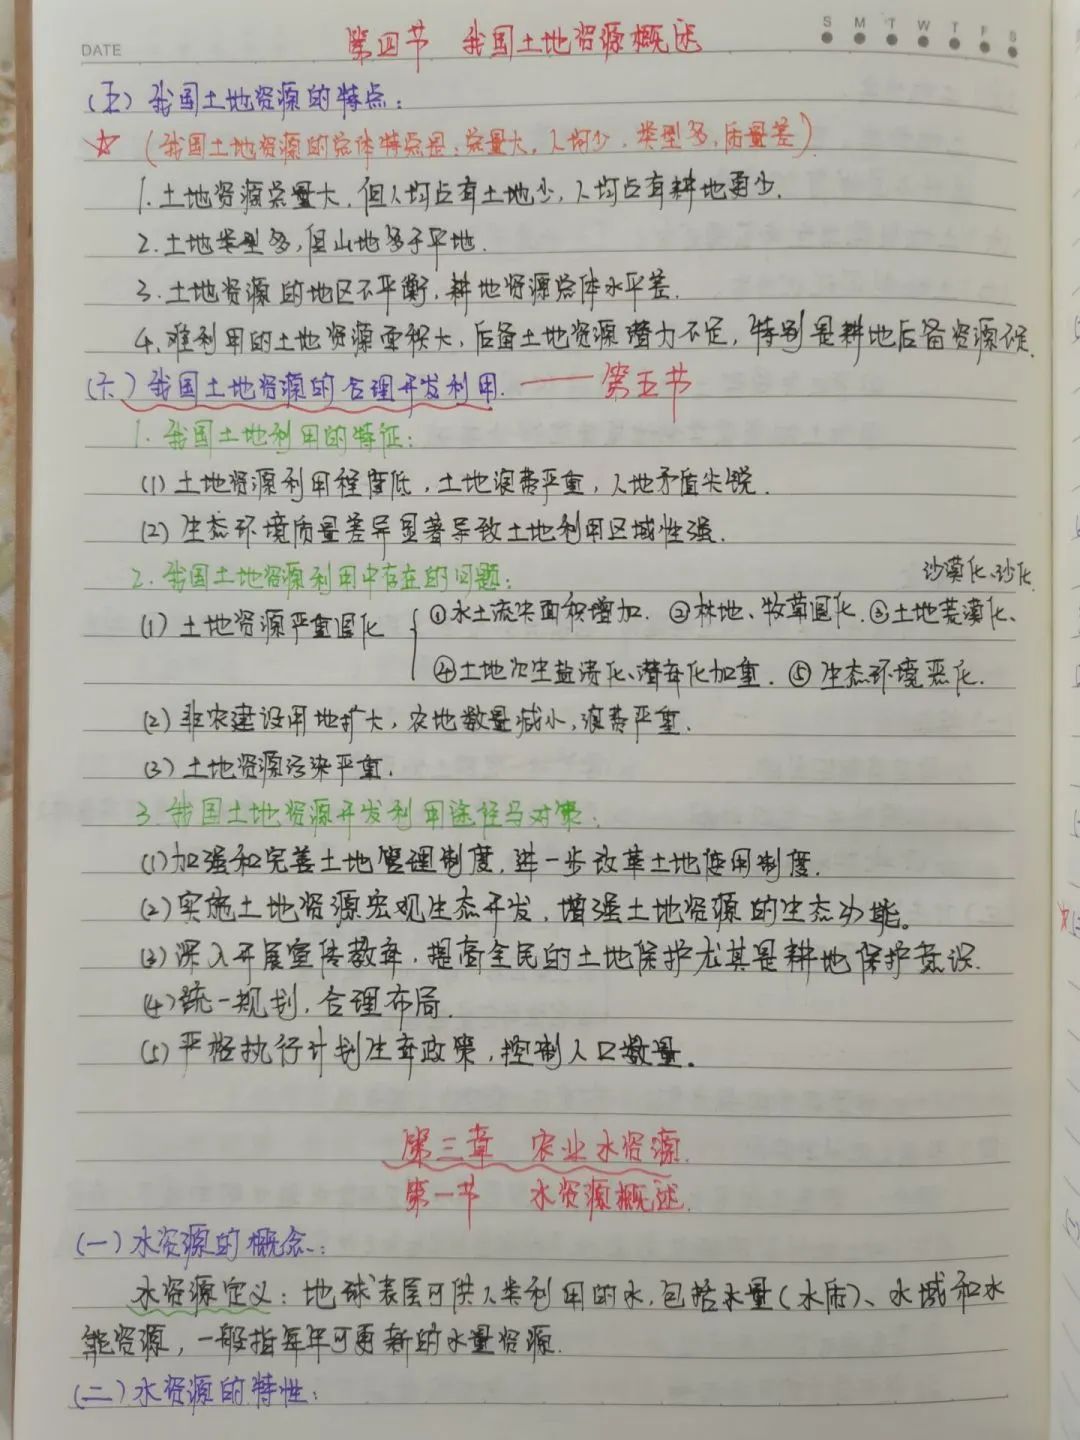 DATE
S M T W T F S
第四节 我国土地资源概述
(五) 我国土地资源的特点:
☆ (我国土地资源的总体特点是:总量大,人均少,类型多,质量差)
1.土地资源总量大,但人均占有土地少,人均占有耕地更少.
2.土地类型多,但山地多于平地.
3.土地资源的地区不平衡,耕地资源总体水平差.
4.难利用的土地资源面积大,后备土地资源潜力不足,特别是耕地后备资源不足.
(六)我国土地资源的合理开发利用. ——第五节
1.我国土地利用的特征:
(1)土地资源利用程度低,土地浪费严重,人地矛盾尖锐.
(2)生态环境质量差异显著导致土地利用区域性强.
2.我国土地资源利用中存在的问题:
沙漠化、沙化
(1)土地资源严重退化 { ①水土流失面积增加. ②林地、牧草退化. ③土地荒漠化、
④土地次生盐渍化、潜育化加重. ⑤生态环境恶化.
(2)非农建设用地扩大,农地数量减小,浪费严重.
(3)土地资源污染严重.
3.我国土地资源开发利用途径与对策:
(1)加强和完善土地管理制度,进一步改革土地使用制度.
(2)实施土地资源宏观生态开发,增强土地资源的生态功能。
(3)深入开展宣传教育,提高全民的土地保护尤其是耕地保护意识.
(4)统一规划,合理布局.
(5)严格执行计划生育政策,控制人口数量。
第三章 农业水资源.
第一节 水资源概述.
(一)水资源的概念:
水资源定义:地球表层可供人类利用的水,包括水量(水质)、水域和水
能资源,一般指每年可更新的水量资源.
(二)水资源的特性: